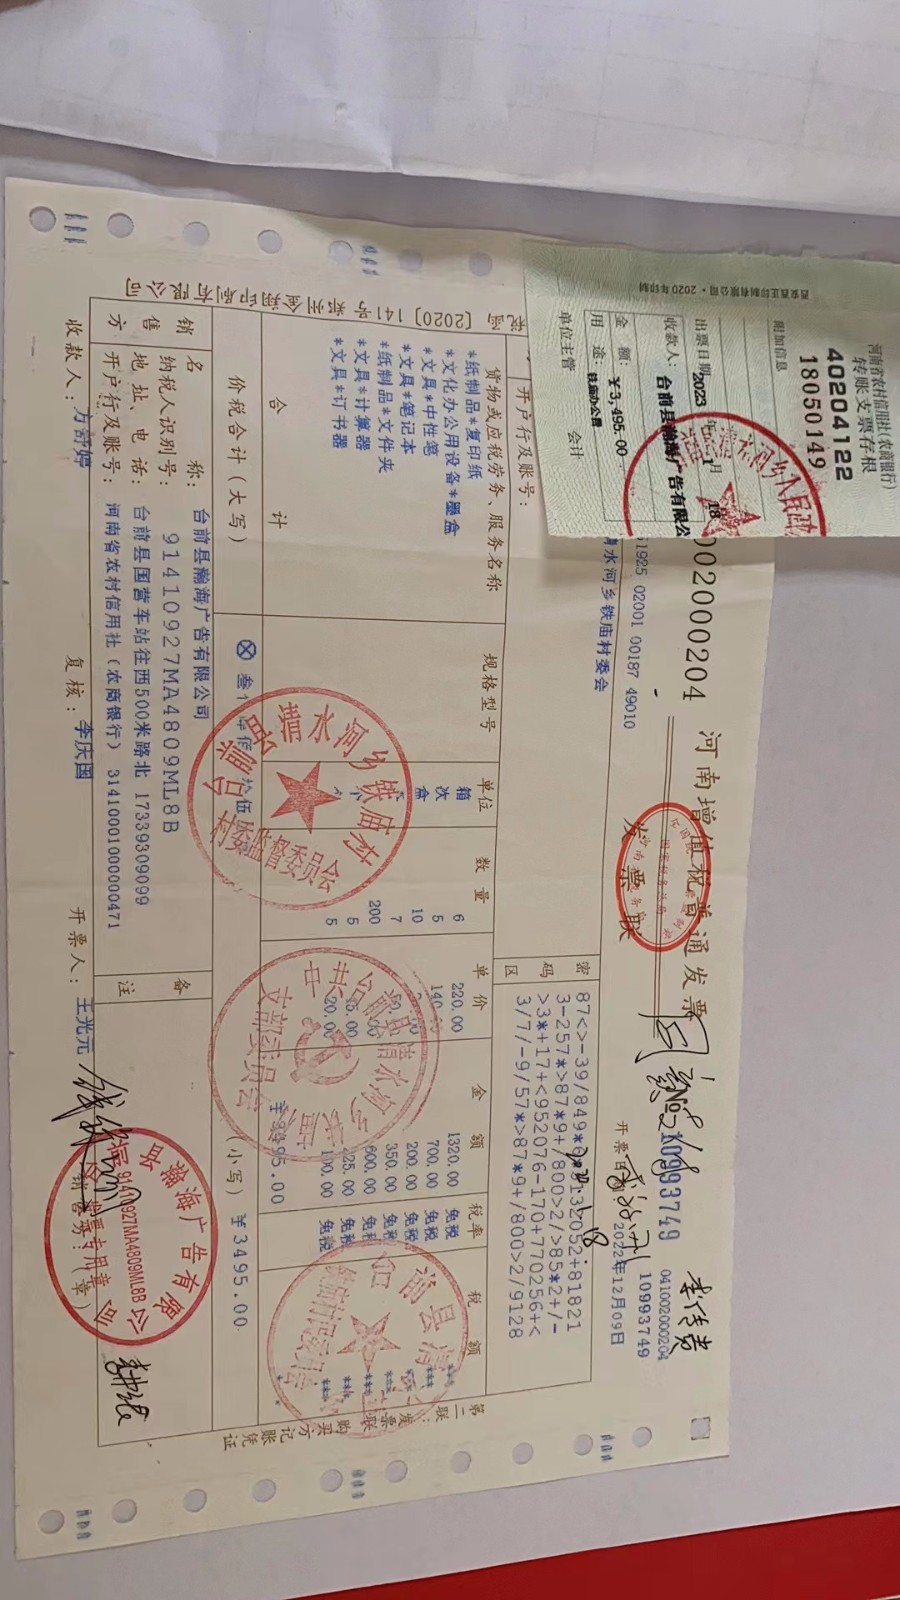 河南省农村信用社(农商银行)
转账支票存根
40204122
18050149
附加信息
出票日期2023年 1月 18
收款人:台前县瀚海广告有限公
金 额:¥3,495.00
用 途:铁庙办公费
单位主管 会计
西安西正印制有限公司·2020年印制
002000204 河南增值税普通发票 №10993749
041002000204
10993749
发票联
开票日期:2022年12月09日
61925 02001 00187 49010
清水河乡铁庙村委会
开户行及账号:
密码区
87<>-39/849*
81821
3-257*>87*9+/800>2/>85*2+/-
>3*+17+<952076-170+770256+<
3/7/-9/57*>87*9+/800>2/9128
货物或应税劳务、服务名称 规格型号 单位 数量 单价 金额 税率 税额
*纸制品*复印纸 箱 6 220.00 1320.00 免税 ***
*文化办公用设备*墨盒 次 5 140.00 700.00 免税 ***
*文具*中性笔 盒 10 200.00 免税
*文具*笔记本 7 350.00 免税
*纸制品*文件夹 200 600.00 免税
*文具*计算器 5 免税
*文具*订书器 5 20.00 100.00 免税
合 计 ¥3495.00
价税合计(大写) (小写) ¥3495.00
销售方
名 称:台前县瀚海广告有限公司
纳税人识别号:91410927MA4809ML8B
地址、电话:台前县国营车站往西500米路北 17339309099
开户行及账号:河南省农村信用社(农商银行) 31410001000000471
备注
收款人:方舒婷 复核:李庆国 开票人:王光元 销售方:(章)
第二联:发票联 购买方记账凭证
[2020]141号郑州金翔印刷有限公司
台前县清水河乡铁庙村
村委监督委员会
中共台前县清水河乡铁庙
支部委员会
瀚海广告有限公
91410927MA4809ML8B
发票专用章